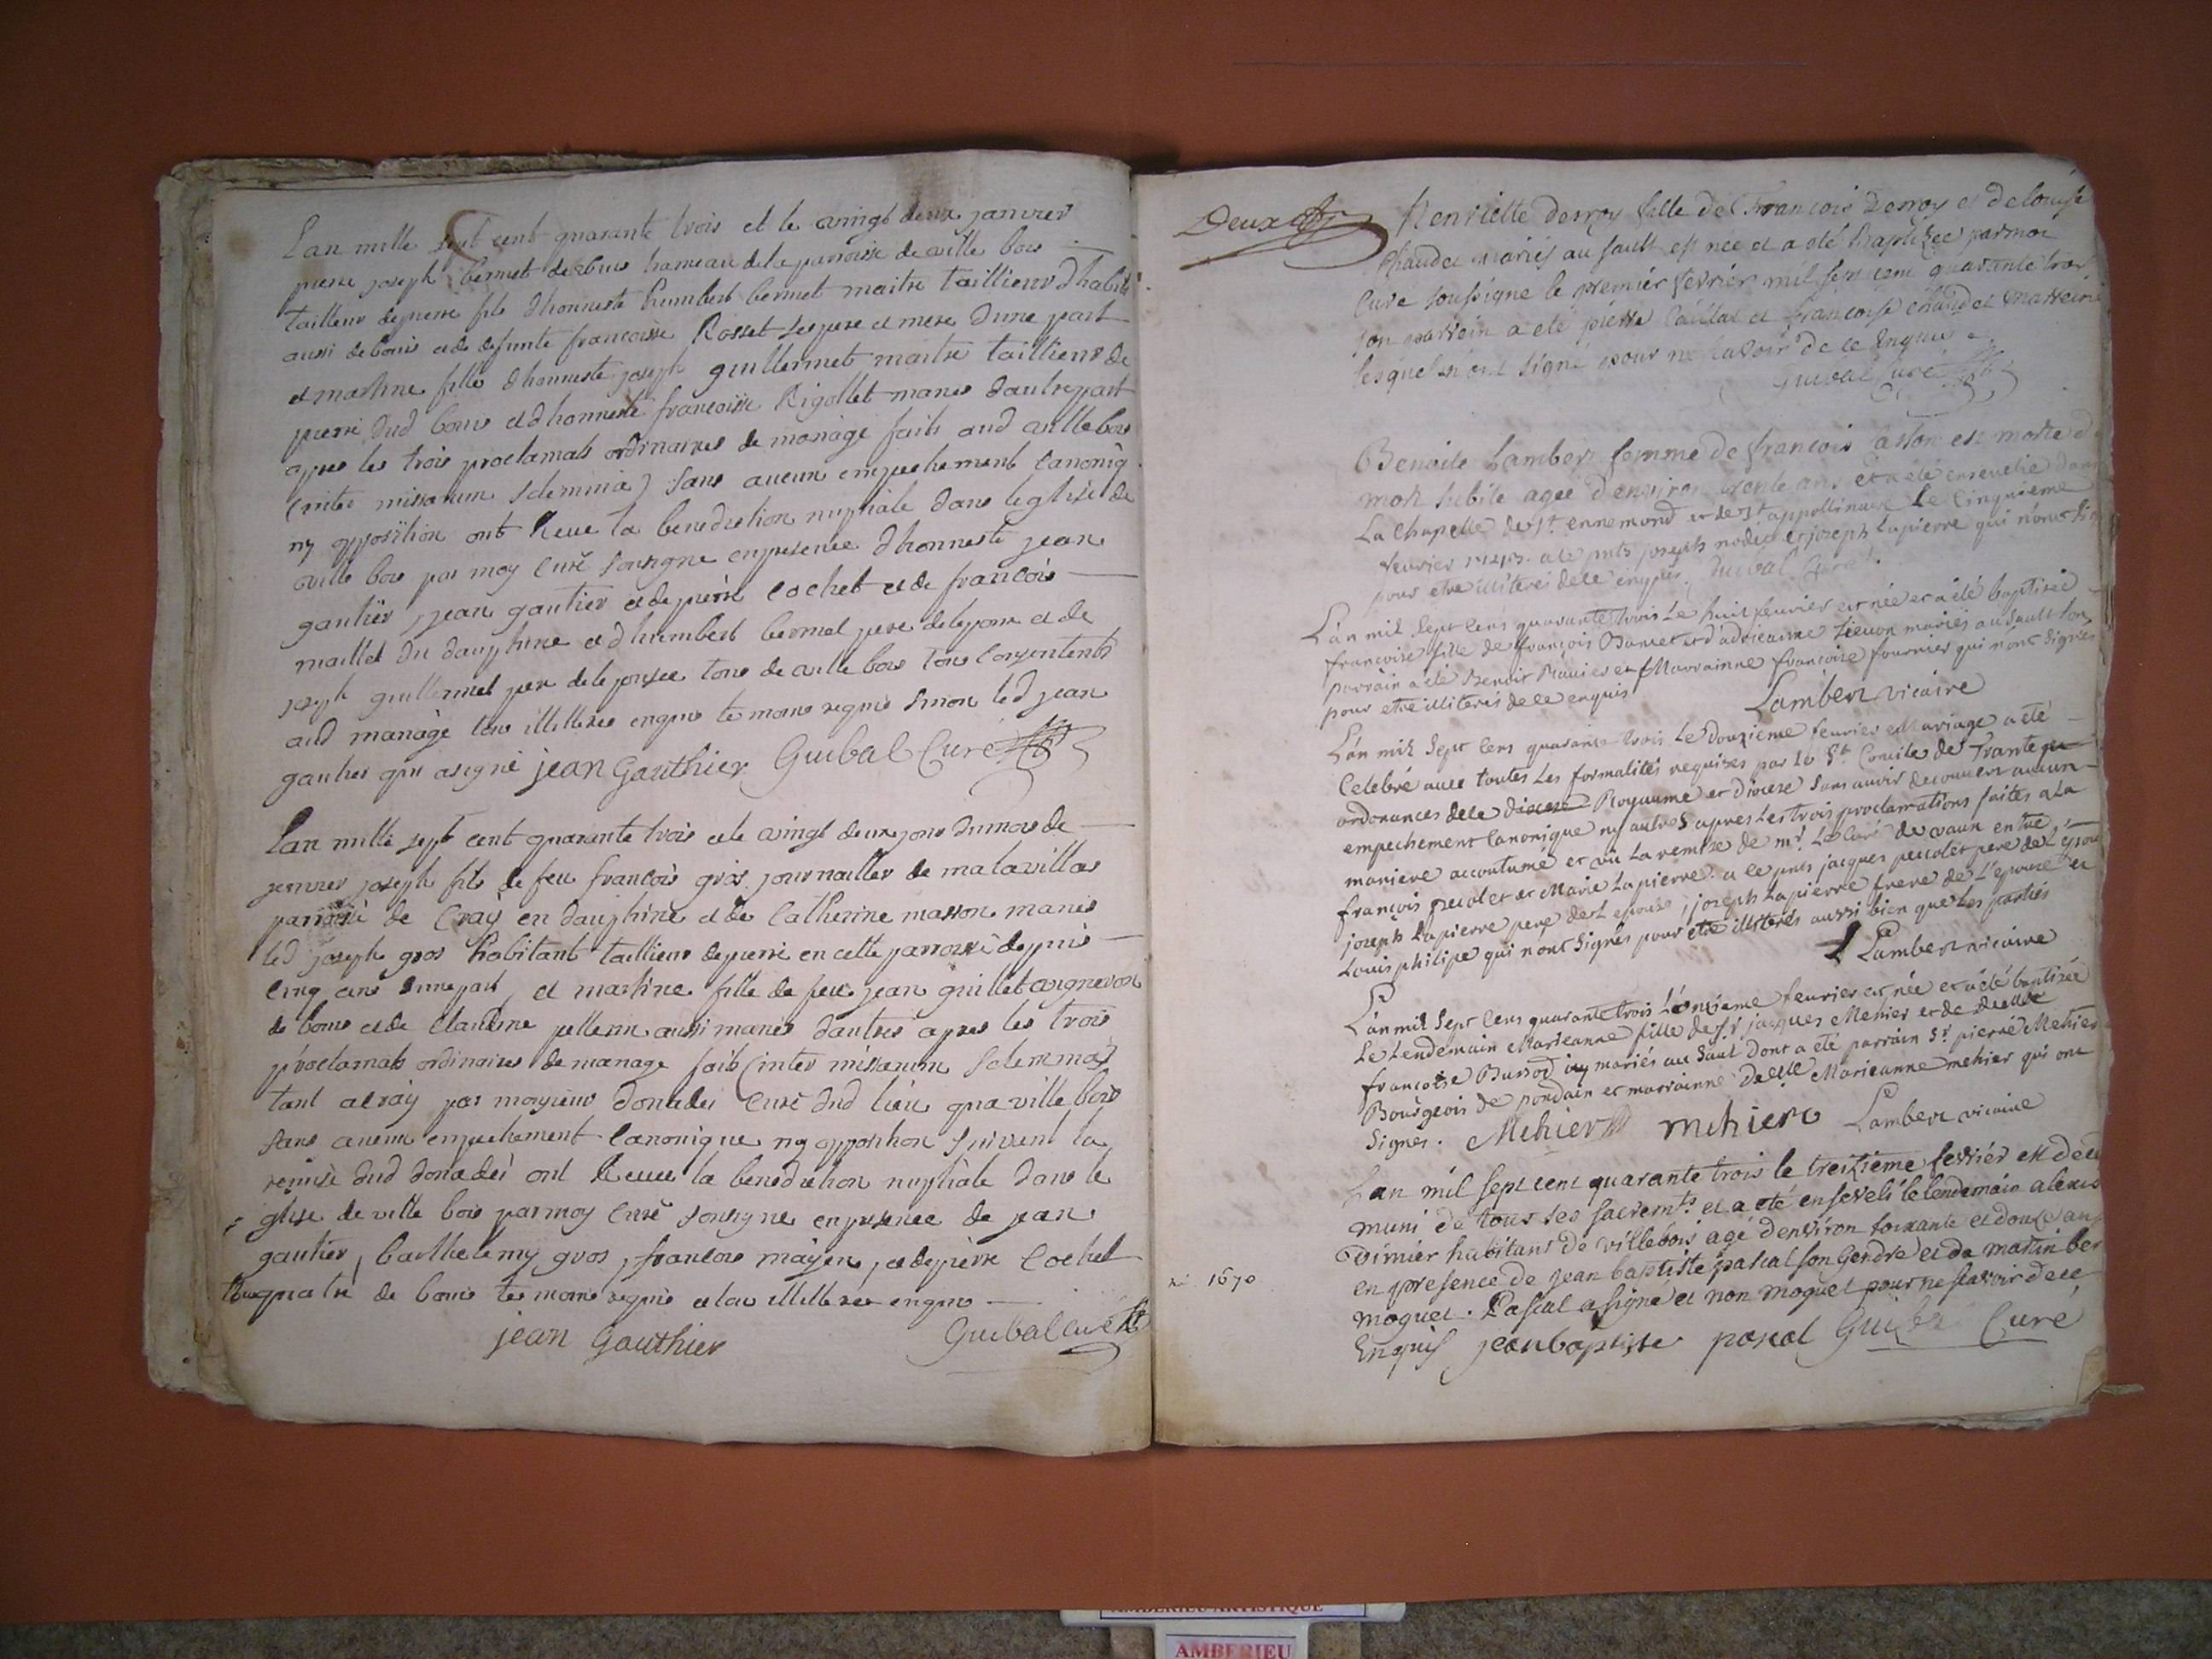 Lan mille sept cent quarante trois et le vingt deux janvier
pierre joseph bermet de bouis hameau de la parroisse de ville bois
tailleur de pierre fils dhonneste humbert bermet maitre taillieur dhabits
aussi de bouis et de defunte francoise Rosset ses pere et mere dune part
et martine fille dhonneste joseph guillermet maitre taillieur de
pierre dud bouis et dhonneste francoise Rigollet maries dautre part
apres les trois proclamats ordinaires de mariage faits aud ville bois
(inter missarum solemnia) sans aucun empechement canoniq
ny opposition ont Receu la benediction nuptiale dans leglise de
ville bois par moy curé sousigne en presence dhonneste jean
gautier, jean gautier et de pierre cochet et de francois
maillet du dauphine et dhumbert bermet pere de lepoux et de
joseph guillermet pere de lepousee tous de ville bois tous consentents
aud mariage tous illitteres enquis temoins requis sinon led jean
gautier qui a signé jean Gauthier Guibal Curé
Lan mille sept cent quarante trois et le vingt deux jour du mois de
janvier joseph fils de feu francois gros journaillier de malavillas
parroisse de Cray en dauphiné et de Catherine masson maries
led joseph gros habitant taillieur de pierre en cette parroisse depuis
cinq ans dune part, et martine fille de feu jean guillet vigneron
de bouis et de claudine pellerin aussi maries dautre apres les trois
proclamats ordinaires de mariage faits (inter missarum solemnia)
tant a cray par monsieur donadei curé dud lieu qua ville bois
sans aucun empechement canonique ny opposition suivant la
remise dud donadei ont Receu la benediction nuptiale dans le
glise de ville bois par moy curé sousigne en presence de jean
gautier, barthelemy gros, francois mayen, et de pierre Cochet
tous quatre de bouis temoins requis et tous illitteres enquis
jean Gauthier Guibal curé
Deux
Henriette derroy fille de François Derroy et de louise
Chaudet mariés au sault est née et a été baptizée par moi
Curé soussigné le premiér fevriér mil sept cent quarante trois
son parrein a été pierre Caillat et françoise chaudet marreine
lesquels n'ont signé pour ne sçavoir de ce Enquis
Guibal Curé
Benoite Lambert femme de françois aston est morte de
mort subite agée d'environ trente ans et a été ensevelie dans
La Chapelle de st. ennemond et de st appollinaire Le Cinquieme
fevrier 1743. a ce pnts joseph nodet et joseph Lapierre qui n'ont sig
pour etre illiterés de ce enquis. Guibal Curé.
L'an mil sept cens quarante trois Le huit fevrier est née et a été baptisée
francoise fille de françois Barnet et d'adrieanne Lievon mariés au sault son
parrain a été Benoit Ravier et Marrainne francoise fournier qui n'ont signés
pour etre illiterés de ce enquis
Lambert vicaire
L'an mil sept cens quarante trois Le douzieme fevrier Mariage a été
Celebré avec toutes Les formalités requises par Le St. Concile de Trante
ordonances de ce diocese Royaume et diocese sans avoir decouvert aucun
empechement Canonique ny autres apres Les trois proclamations faites a La
maniere accoutumé et vû La remise de mr. Le Curé de vaux entre
françois pecolet et Marie Lapierre. a ce pnts jacques pecolet pere de L'epoux
joseph Lapierre pere de L'epouse, joseph Lapierre frere de L'epouse et
Louis philipe qui n'ont signés pour etre illiterés aussi bien que Les parties
Lambert vicaire
L'an mil sept cens quarante trois L'onzieme fevrier est née et a été baptisée
Le Lendemain Marieanne fille de sr jacques Mehier et de delle
francoise Bussod mariés au Saut dont a été parrain sr. pierre Mehier
Bourgeois de pondain et marrainne delle Marieanne mehier qui ont
signés. Mehier mehier Lambert vicaire
Lan mil sept cent quarante trois le treizieme fevriér est decedé
muni de tous ses sacremts. et a été enseveli le lendemain alexis
Vimier habitant de villebois agé denviron soixante et douze ans
en presence de jean baptiste pascal son Gendre et de martin ber
moguet. Pascal a signé et non moguet pour ne scavoir de ce
Enquis jean baptiste pascal Guibal Curé
né 1670
AMBERIEU ARTISTIQUE
AMBERIEU